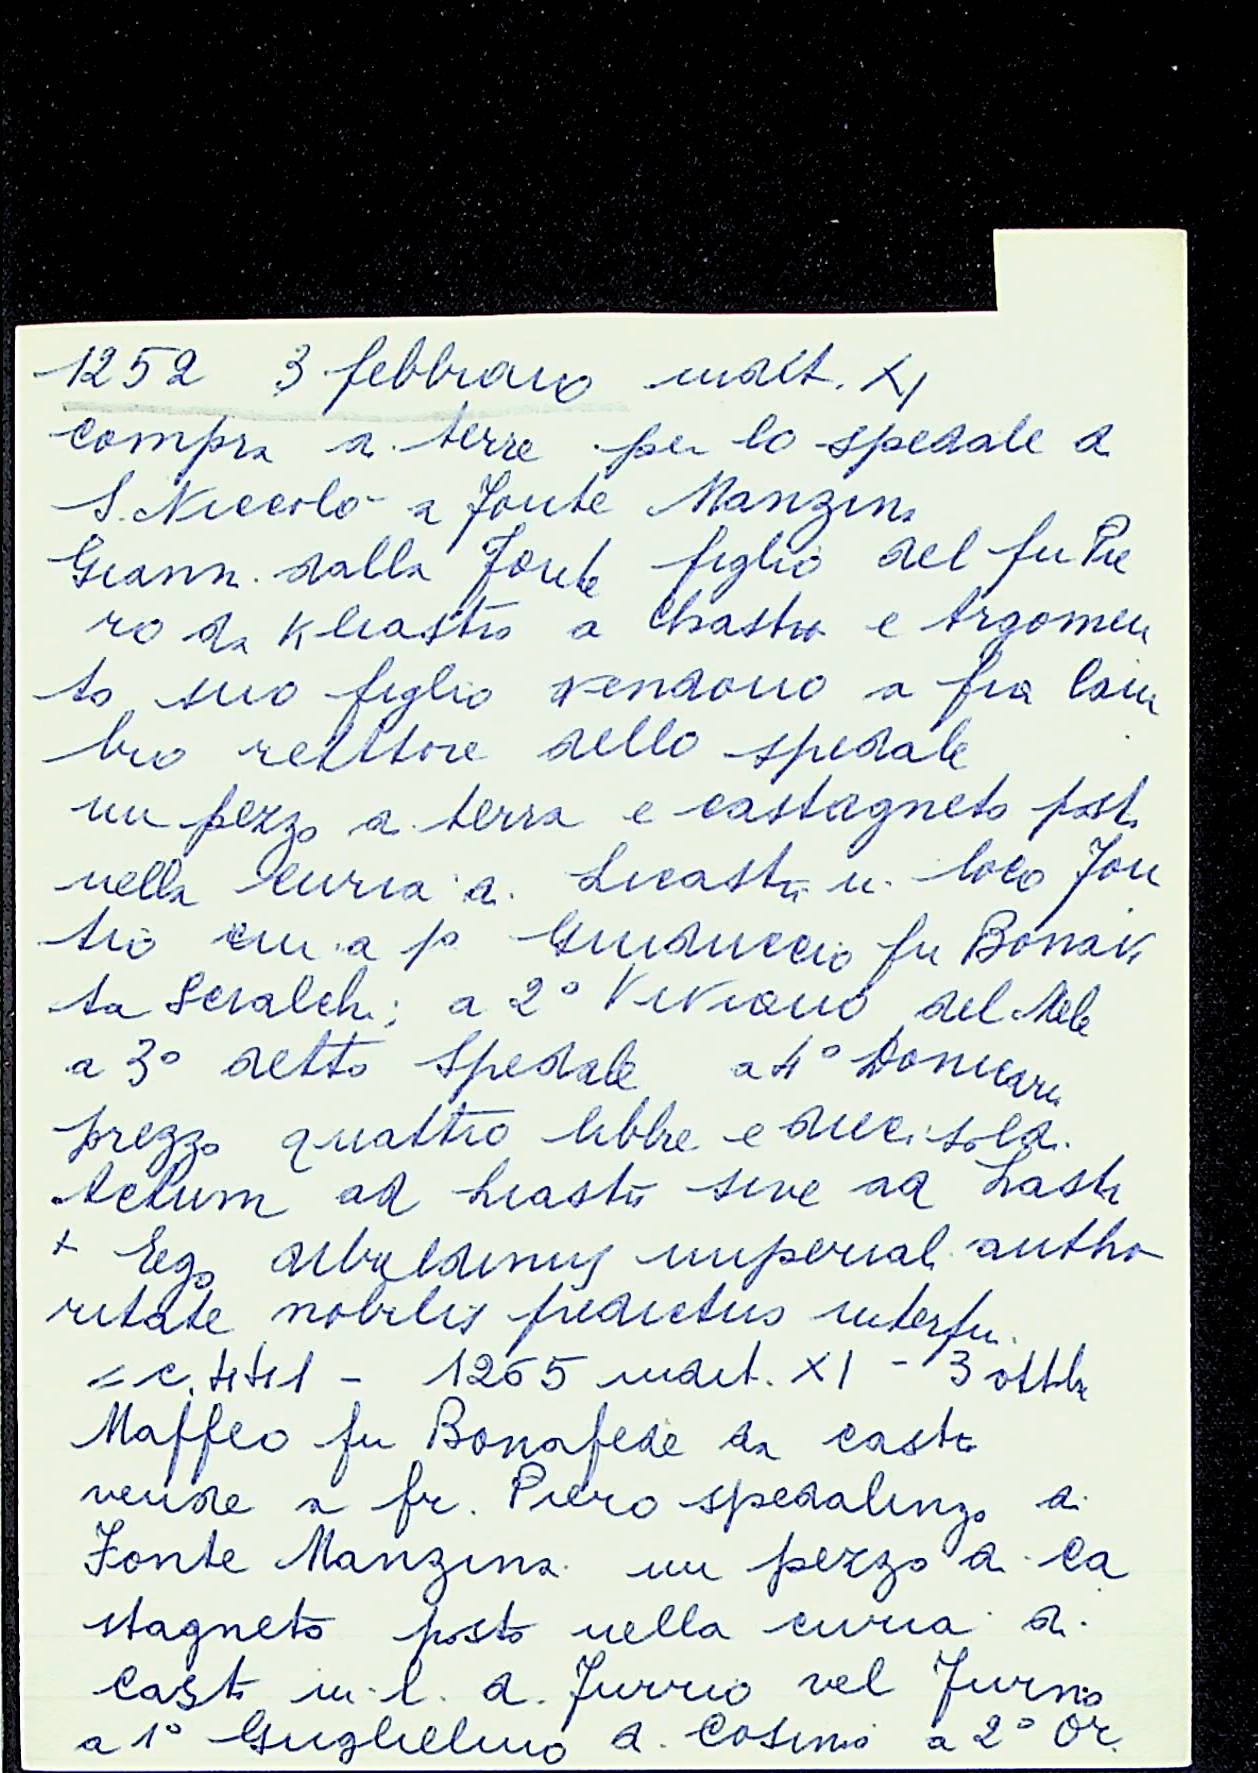 1252 3 febbraio indit. XI
compra di terre per lo spedale di
S. Niccolò a Fonte Manzina
Giann. dalla Fonte figlio del fu Pie
ro da a Chastro e Argomen
to suo figlio vendono a fra Lam
bro rettore dello spedale
un pezzo di terra e castagneto posto
nella curia di Licastro in loco Fon
tio cui a p° Guiduccio fu Bonavi
ta Scialchi; a 2° Viviano del Mele
a 3° detto Spedale a 4°
prezzo quattro libbre e dieci soldi.
Actum ad sive ad
+ Ego imperiali autho
ritate nobilis predictus interfui.
= c. 441 - 1265 indit. XI - 3 ottbr
Maffeo fu Bonafede da castr
vende a fr. Piero spedalingo di
Fonte Manzina un pezzo di ca
stagneto posto nella curia di
Casti in l. d. Furrio vel Furno
a 1° Guglielmo d. Cosimo a 2° Or.